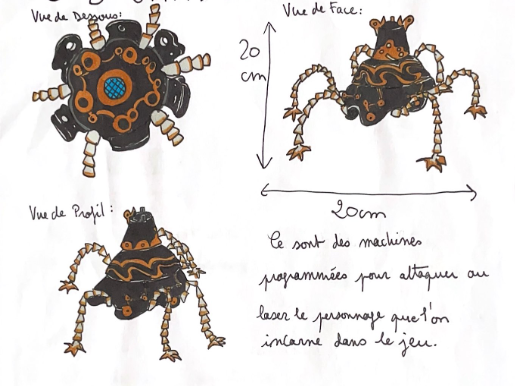 Vue de Dessous:
Vue de Face:
20
cm
20cm
Vue de Profil:
Ce sont des machines
programmées pour attaquer au
laser le personnage que l'on
incarne dans le jeu.